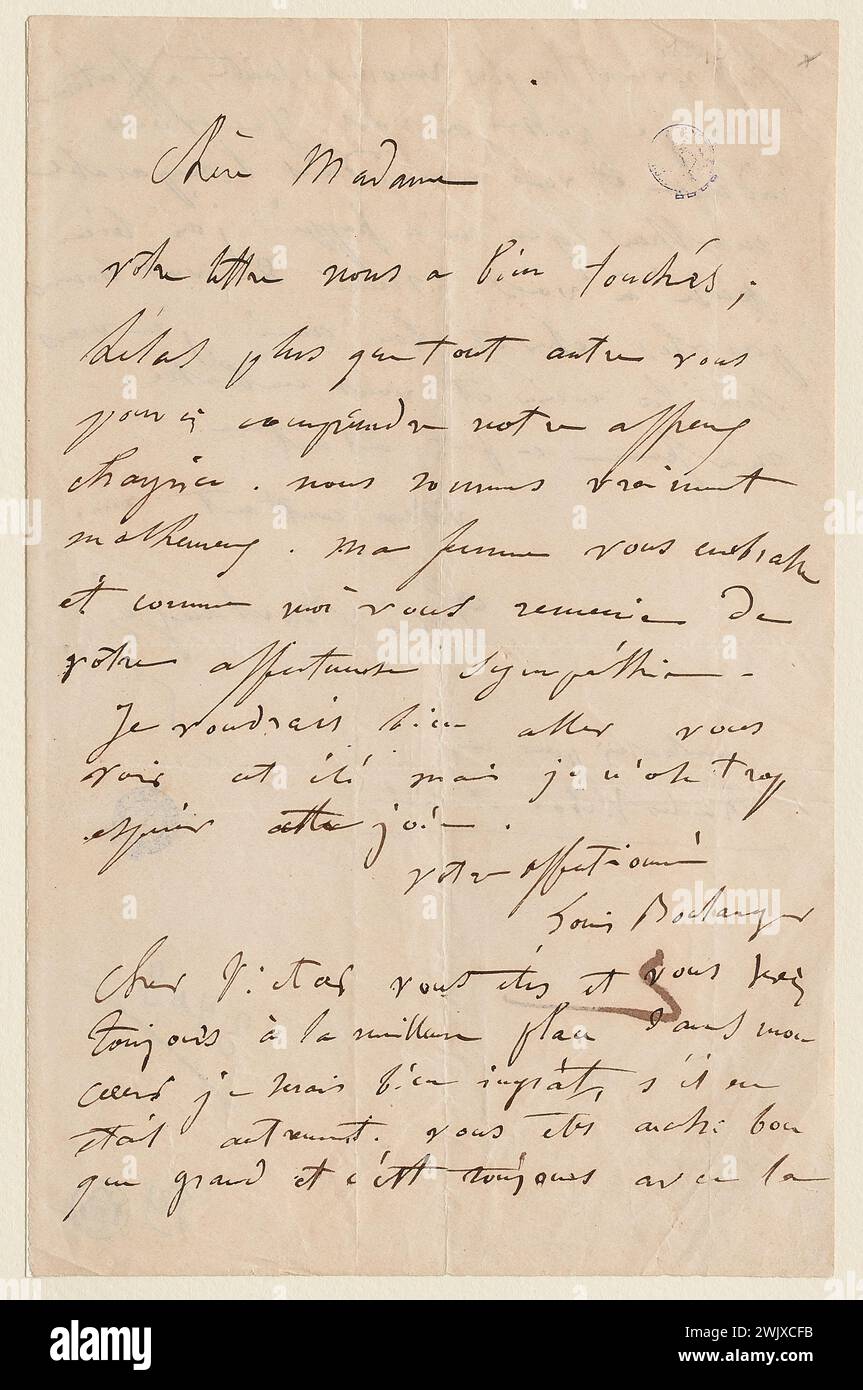 Chère Madame
votre lettre nous a bien touchés ;
hélas plus que tout autre vous
pouvez comprendre notre affreux
chagrin . nous sommes vraiment
malheureux . ma femme vous embrasse
et comme moi vous remercie de
votre affectueuse sympathie -
Je voudrais bien aller vous
voir cet été mais je n'ose trop
espérer cette joie .
votre affectionné
Louis Boulanger
Cher Victor vous êtes et vous serez
toujours à la meilleure place dans mon
coeur je serais bien ingrat, s'il en
était autrement . vous êtes aussi bon
que grand et c'est toujours avec la
alamy
Image ID: 2WJXCFB
www.alamy.com